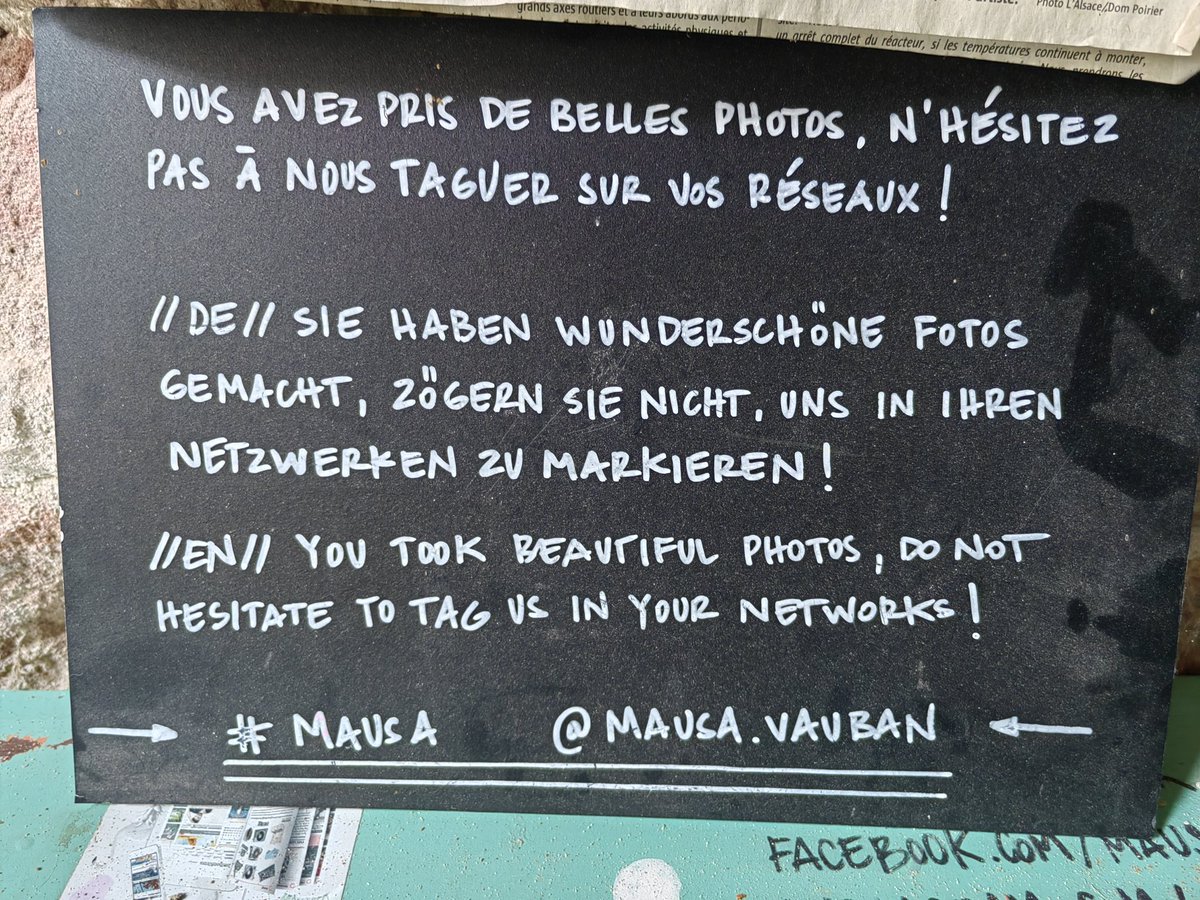 grands axes routiers et à leurs abords aux pério-
Photo L'Alsace/Dom Poirier
un arrêt complet du réacteur, si les températures continuent à monter,
VOUS AVEZ PRIS DE BELLES PHOTOS, N'HÉSITEZ
PAS À NOUS TAGUER SUR VOS RÉSEAUX !
//DE// SIE HABEN WUNDERSCHÖNE FOTOS
GEMACHT, ZÖGERN SIE NICHT, UNS IN IHREN
NETZWERKEN ZU MARKIEREN !
//EN// YOU TOOK BEAUTIFUL PHOTOS, DO NOT
HESITATE TO TAG US IN YOUR NETWORKS !
→ # MAUSA @MAUSA.VAUBAN ←
FACEBOOK.COM/MAUS